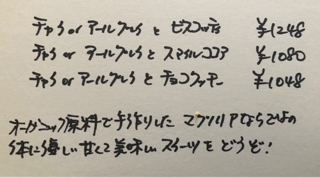 チャイ or アールグレイ と ビスコッティ ¥1248
チャイ or アールグレイ と スマイルココア ¥1080
チャイ or アールグレイ と チョコクッキー ¥1048
オーガニック原料で手作りした マプリリアならではの
体に優しい甘くて美味しいスイーツをどうぞ!